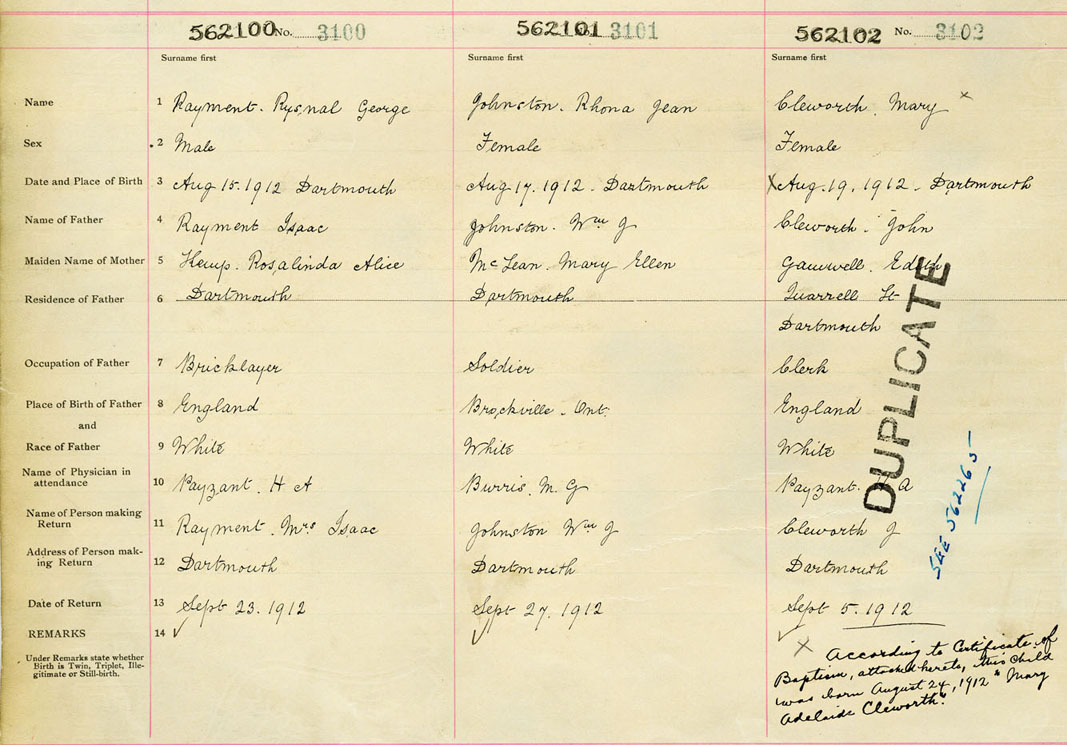 562100 No. 3100 562101 3101 562102 No. 3102
Surname first Surname first Surname first
Name 1 Rayment. Rysnal George Johnston. Rhona Jean Cleworth. Mary x
Sex 2 Male Female Female
Date and Place of Birth 3 Aug 15. 1912 Dartmouth Aug 17. 1912 - Dartmouth X Aug. 19, 1912 - Dartmouth
Name of Father 4 Rayment Isaac Johnston. Wm J Cleworth. John
Maiden Name of Mother 5 Hemp. Rosalinda Alice McLean. Mary Ellen Gamwell. Edith
Residence of Father 6 Dartmouth Dartmouth Quarrell St
Dartmouth
Occupation of Father 7 Bricklayer Soldier Clerk
Place of Birth of Father 8 England Brockville - Ont. England
and
Race of Father 9 White White White
Name of Physician in
attendance 10 Payzant. H A Burris. M. G Payzant. A
Name of Person making
Return 11 Rayment. Mrs Isaac Johnston Wm J Cleworth J
Address of Person mak-
ing Return 12 Dartmouth Dartmouth Dartmouth
Date of Return 13 Sept 23. 1912 Sept 27. 1912 Sept 5. 1912
REMARKS 14
Under Remarks state whether
Birth is Twin, Triplet, Ille-
gitimate or Still-birth.
X According to Certificate of
Baptism, attached hereto, this child
was born August 24, 1912 "Mary
Adelaide Cleworth."
DUPLICATE
SEE 562265